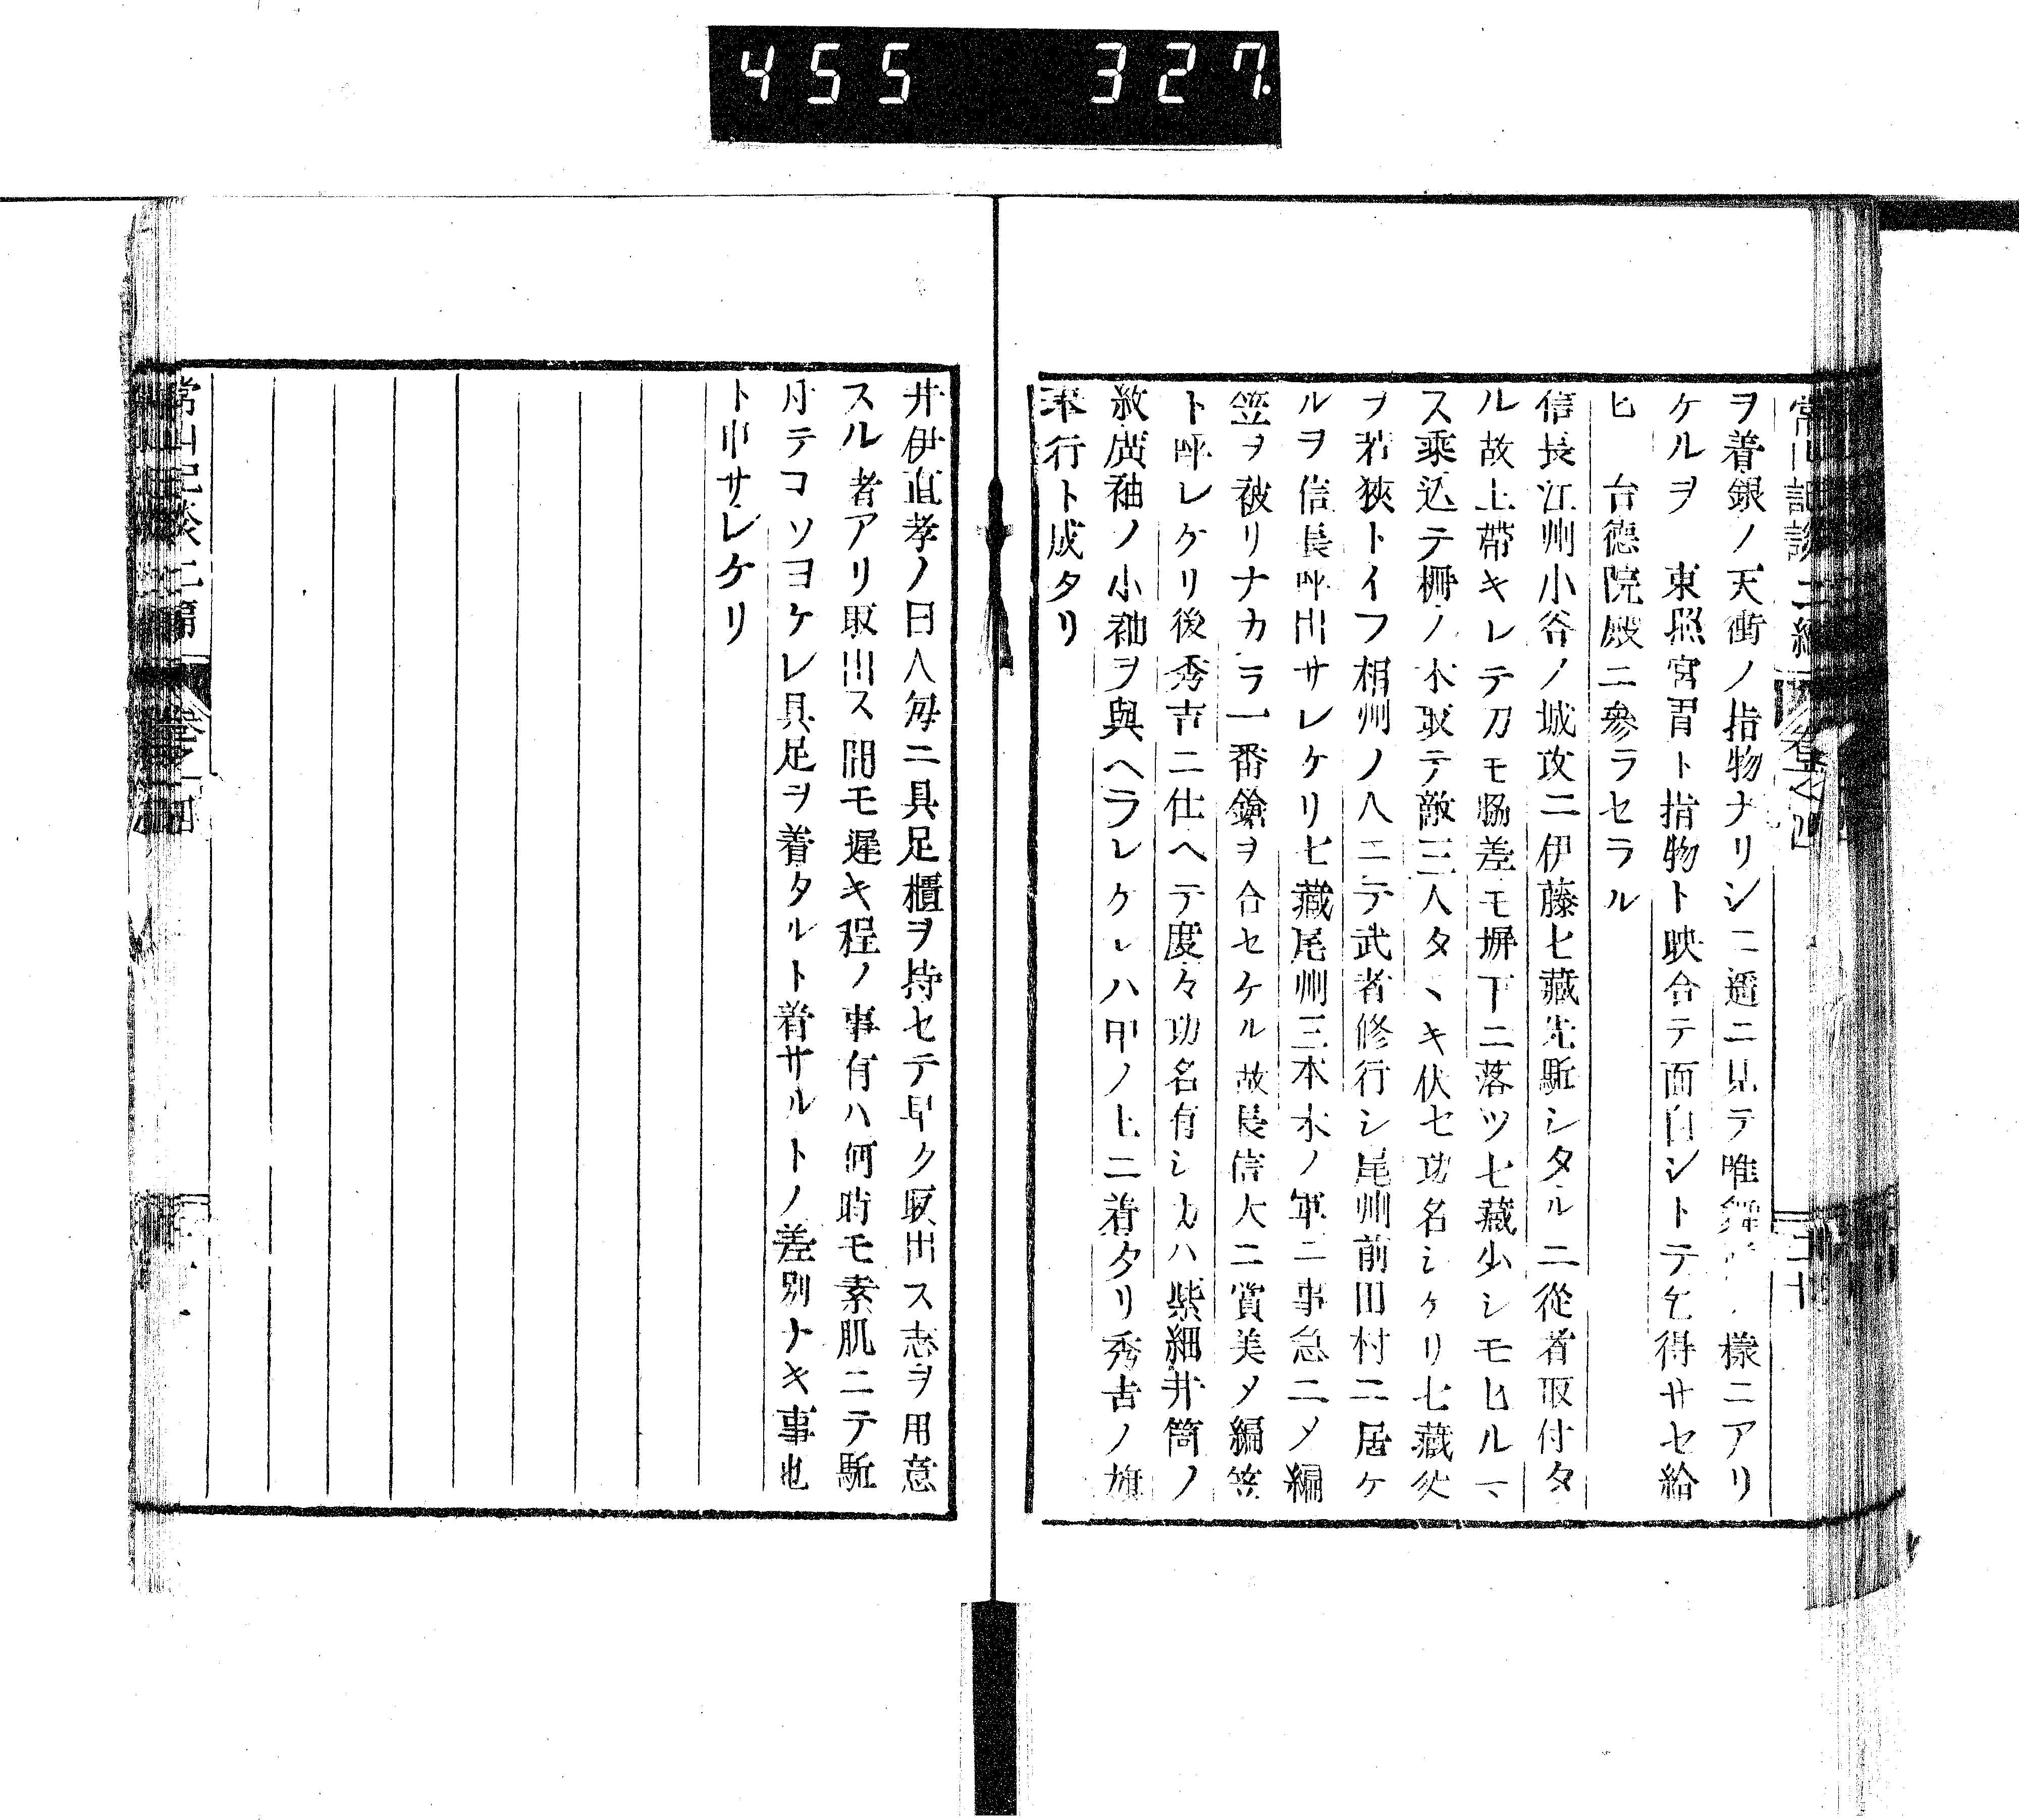 455 327
常山記談二編 卷之四 二十
ヲ着銀ノ天衝ノ指物ナリシニ遥ニ見テ唯舞 樣ニアリ
ケルヲ 東照宮胃ト指物ト映合テ面白シトテ乞得サセ給
ヒ 台德院殿ニ參ラセラル
信長江州小谷ノ城攻ニ伊藤七藏先駈シタルニ從者取付タ
ル故上帶キレテ刀モ脇差モ塀下ニ落ツ七藏少シモヒルマ
ス乘込テ柵ノ木取テ敵三人タヽキ伏セ功名シケリ七藏始
ヲ若狹トイフ相州ノ人ニテ武者修行シ尾州前田村ニ居ケ
ルヲ信長呼出サレケリ七藏尾州三本木ノ軍ニ事急ニメ編
笠ヲ被リナカラ一番鎗ヲ合セケル故長信大ニ賞美メ編笠
ト呼レケリ後秀吉ニ仕ヘテ度々功名有シカハ紫細井筒ノ
紋廣袖ノ小袖ヲ與ヘラレケレハ甲ノ上ニ着タリ秀吉ノ旗
奉行ト成タリ
井伊直孝ノ曰人毎ニ具足櫃ヲ持セテ早ク取出ス志ヲ用意
スル者アリ取出ス間モ遲キ程ノ事有ハ何時モ素肌ニテ駈
付テコソヨケレ具足ヲ着タルト着サルトノ差別ナキ事也
ト申サレケリ
常山記談二編 卷之四